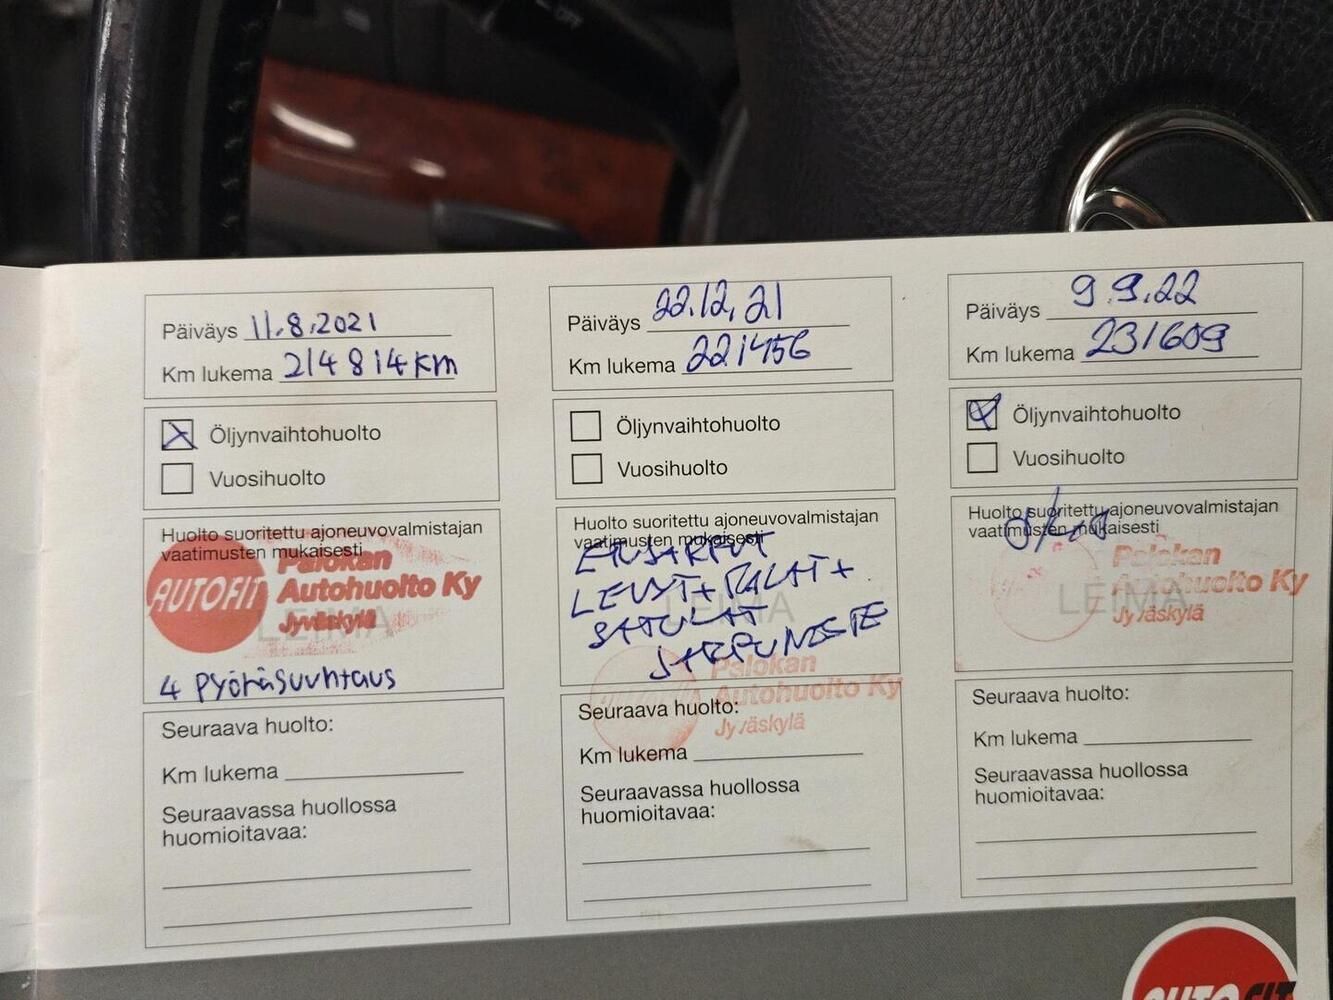 Päiväys 11.8.2021
Km lukema 214 814 km
Öljynvaihtohuolto
Vuosihuolto
Huolto suoritettu ajoneuvovalmistajan
vaatimusten mukaisesti
LEIMA
AUTOFIT
Palokan
Autohuolto Ky
Jyväskylä
4 Pyöräsuuntaus
Seuraava huolto:
Km lukema
Seuraavassa huollossa
huomioitavaa:
Päiväys 22.12.21
Km lukema 221456
Öljynvaihtohuolto
Vuosihuolto
Huolto suoritettu ajoneuvovalmistajan
vaatimusten mukaisesti
LEIMA
ETUJARRUT
LEVYT + PALAT +
SATULAT
JARRUNESTE
Palokan
Autohuolto Ky
Jyväskylä
Seuraava huolto:
Km lukema
Seuraavassa huollossa
huomioitavaa:
Päiväys 9.9.22
Km lukema 231609
Öljynvaihtohuolto
Vuosihuolto
Huolto suoritettu ajoneuvovalmistajan
vaatimusten mukaisesti
LEIMA
Palokan
Autohuolto Ky
Jyväskylä
Seuraava huolto:
Km lukema
Seuraavassa huollossa
huomioitavaa:
AUTOFIT
OFF